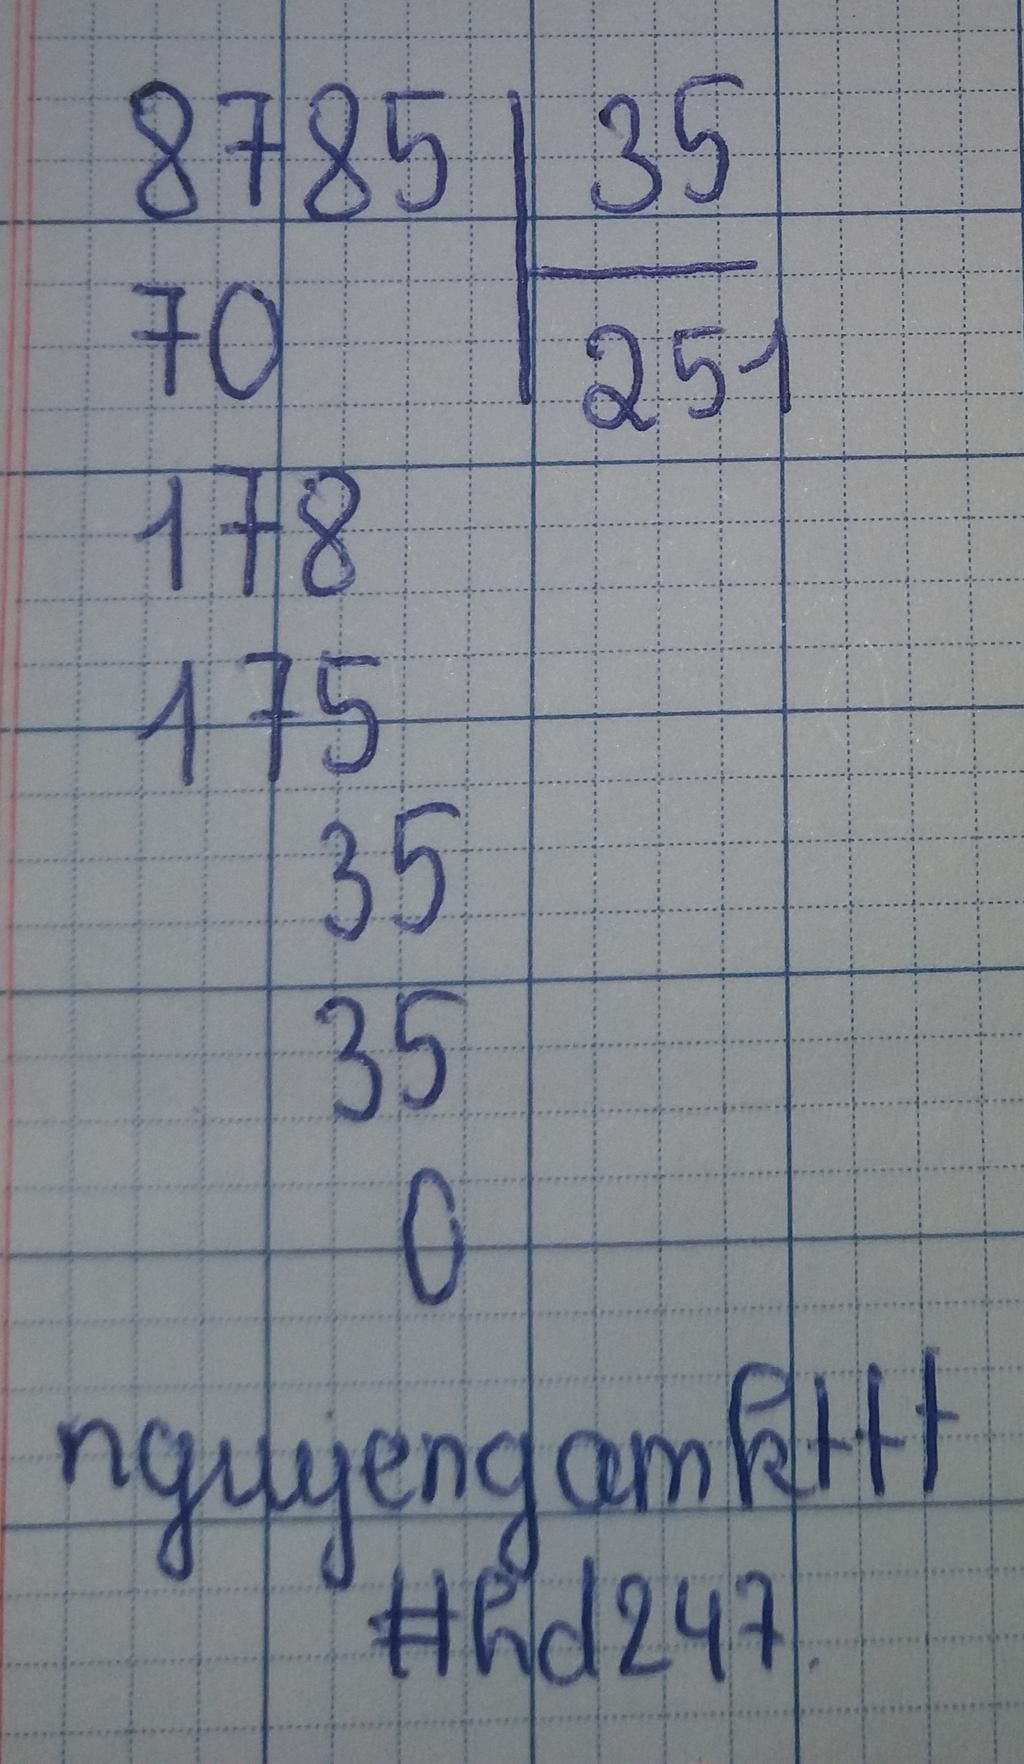 8785 35
70 251
178
175
35
35
0
nguyengamkttt
#hd247.